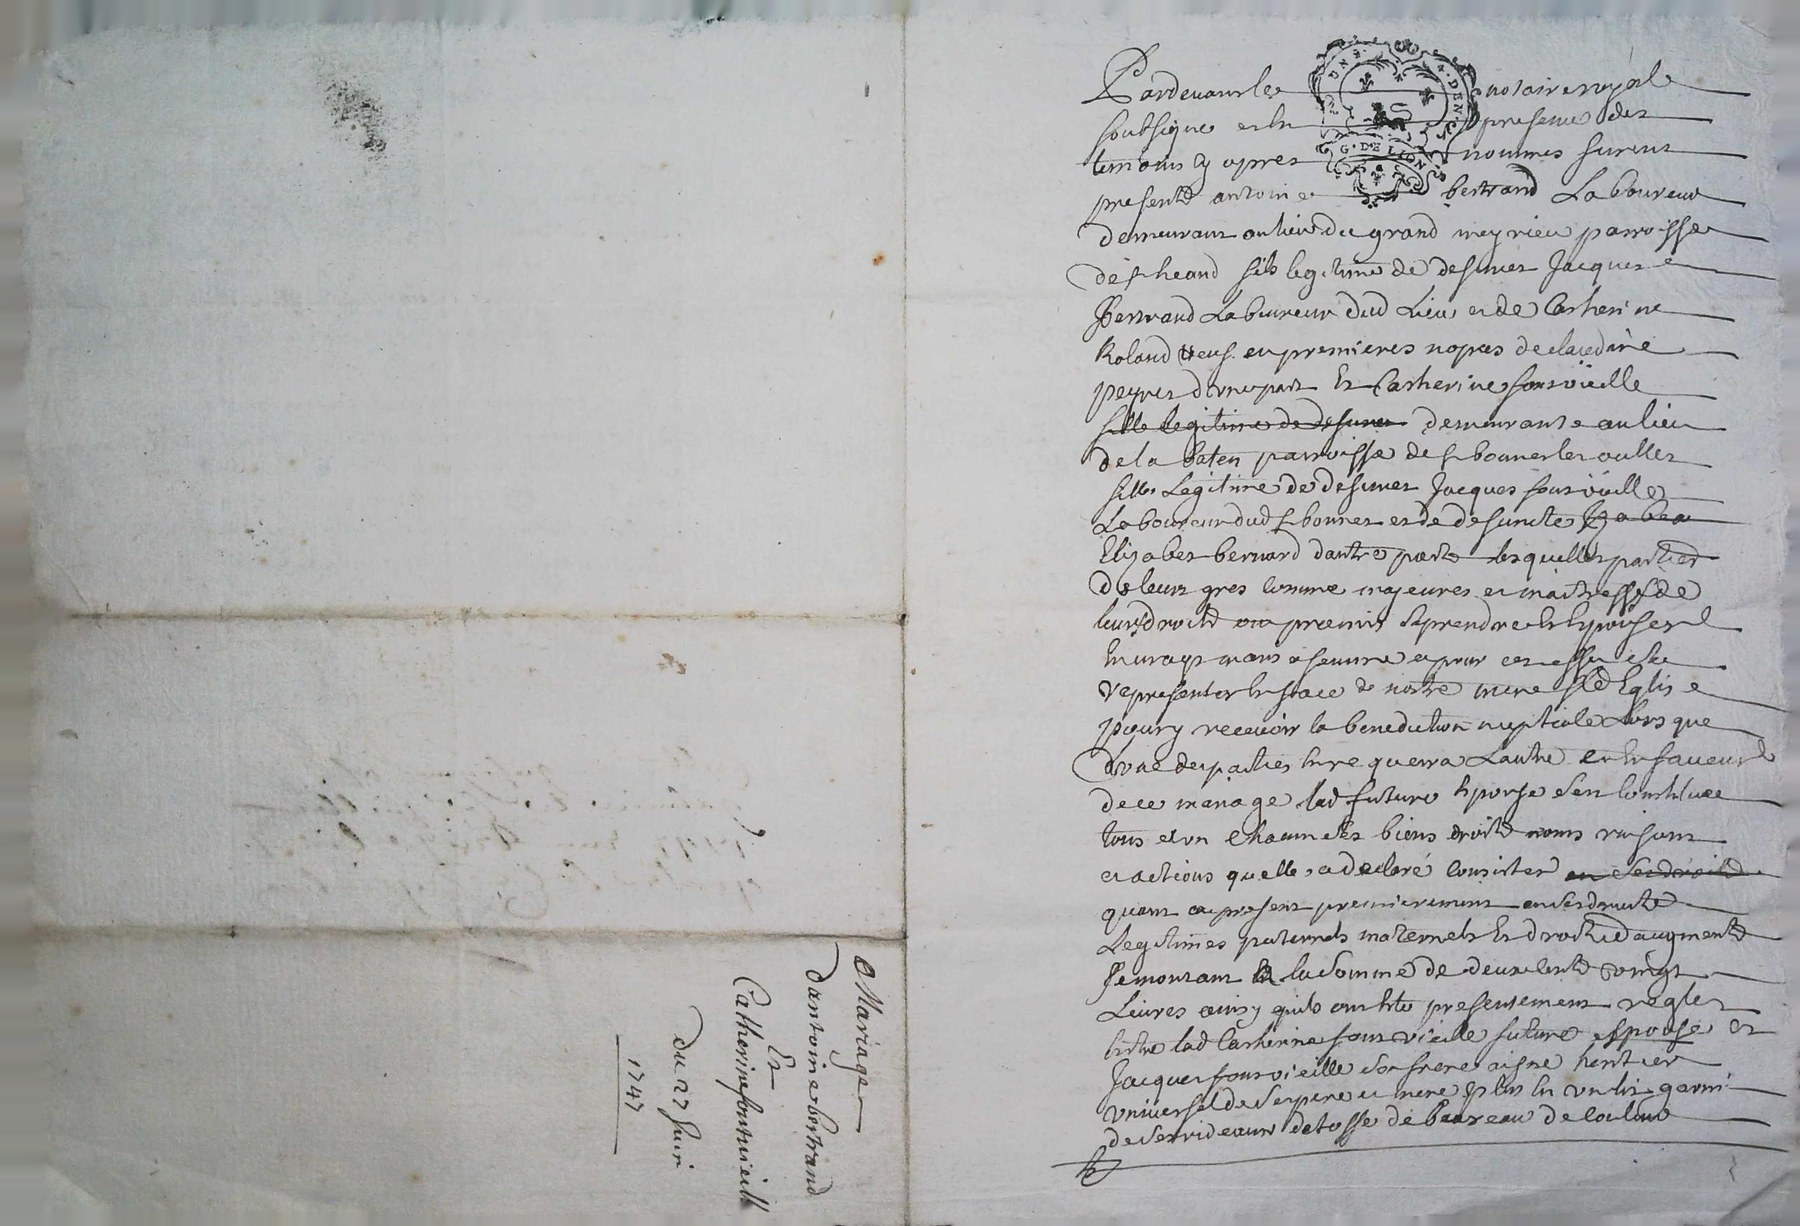 Pardevant le notaire royal
soubsigné et en presence des
temoins cy apres nommés furent
presents antoine bertrand Laboureur
demeurant au lieu du grand meyrieu parroisse
de st heand fils legitime de defunct Jacques
Bertrand Laboureur dud Lieu et de Catherine
Roland veuf en premieres nopces de claudine
peyret d'une part Et Catherine fontvieille
fille legitime de defunct demeurante au lieu
de la parroisse de st bonnet les oulles
fille Legitime de defunct Jacques fontvieille
Laboureur dud st bonnet et de defuncte
Elizabet bernard dautre part lesquelles parties
de leurs gres comme majeures et maitresse de
leurs droits ont promis se prendre Et Epouser
En vrays mary et femme et pour cet effet
representer En face de nostre mere ste Eglise
pour y recevoir la benediction nuptiale Lors que
l'une des parties En requerra Lautre et En faveur
de ce mariage lad future Epouse s'est Constituée
tous et un Chacun ses biens droits noms raisons
et actions quelle a declaré Consister en ses droits
quant a present premierement en ses droits
Legitimes paternels maternels Et droits daugments
se montant a la somme de deux cents vingt
Livres ainsy quils ont Eté presentement reglés
Entre lad Catherine fontvieille future espouse et
Jacques fontvieille son frere aisné heritier
universel de ses pere et mere plus En un lit garni
de ses rideaux de couleur
G. DE LION
Mariage
Dantoine bertrand
Et
Catherine fontvieille
Du 27 Juin
1747